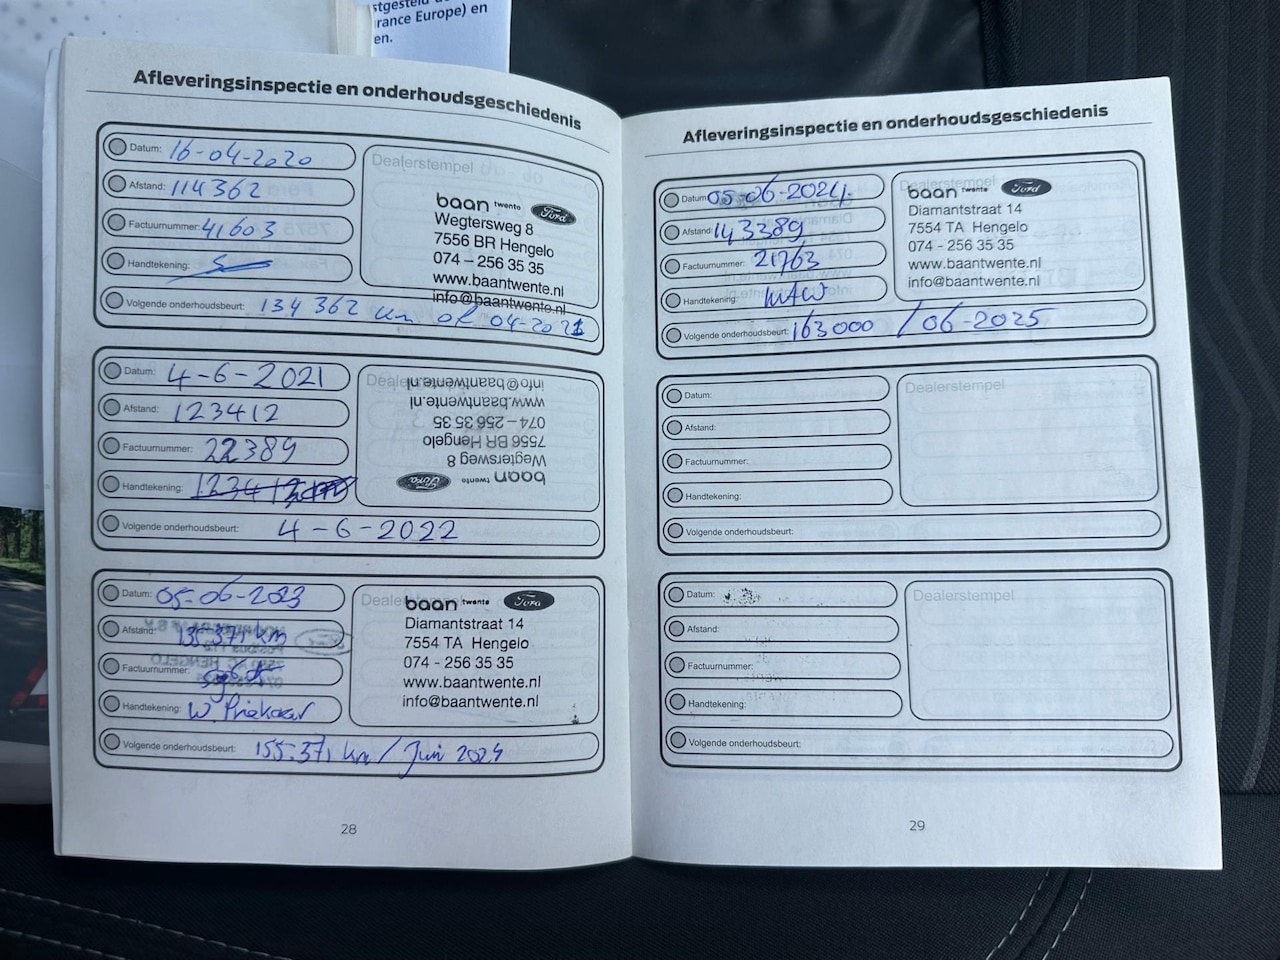 stgesteld
rance Europe) en
en.
Afleveringsinspectie en onderhoudsgeschiedenis
Datum: 16-04-2020
Afstand: 114362
Factuurnummer: 41603
Handtekening:
Volgende onderhoudsbeurt: 134 362 km of 04-2021
Dealerstempel
baan twente Ford
Wegtersweg 8
7556 BR Hengelo
074 – 256 35 35
www.baantwente.nl
info@baantwente.nl
Datum: 4-6-2021
Afstand: 123412
Factuurnummer: 22389
Handtekening:
Volgende onderhoudsbeurt: 4-6-2022
baan twente Ford
Wegtersweg 8
7556 BR Hengelo
074 – 256 35 35
www.baantwente.nl
info@baantwente.nl
Datum: 05-06-2023
Afstand: 135.371 km
Factuurnummer:
Handtekening: W. Priekaar
Volgende onderhoudsbeurt: 155.371 km / Juni 2024
baan twente Ford
Diamantstraat 14
7554 TA Hengelo
074 - 256 35 35
www.baantwente.nl
info@baantwente.nl
28
Afleveringsinspectie en onderhoudsgeschiedenis
Datum: 05-06-2024
Afstand: 143389
Factuurnummer: 21763
Handtekening: MAW
Volgende onderhoudsbeurt: 163000 / 06-2025
Dealerstempel
baan twente Ford
Diamantstraat 14
7554 TA Hengelo
074 - 256 35 35
www.baantwente.nl
info@baantwente.nl
Datum:
Afstand:
Factuurnummer:
Handtekening:
Volgende onderhoudsbeurt:
Dealerstempel
Datum:
Afstand:
Factuurnummer:
Handtekening:
Volgende onderhoudsbeurt:
Dealerstempel
29